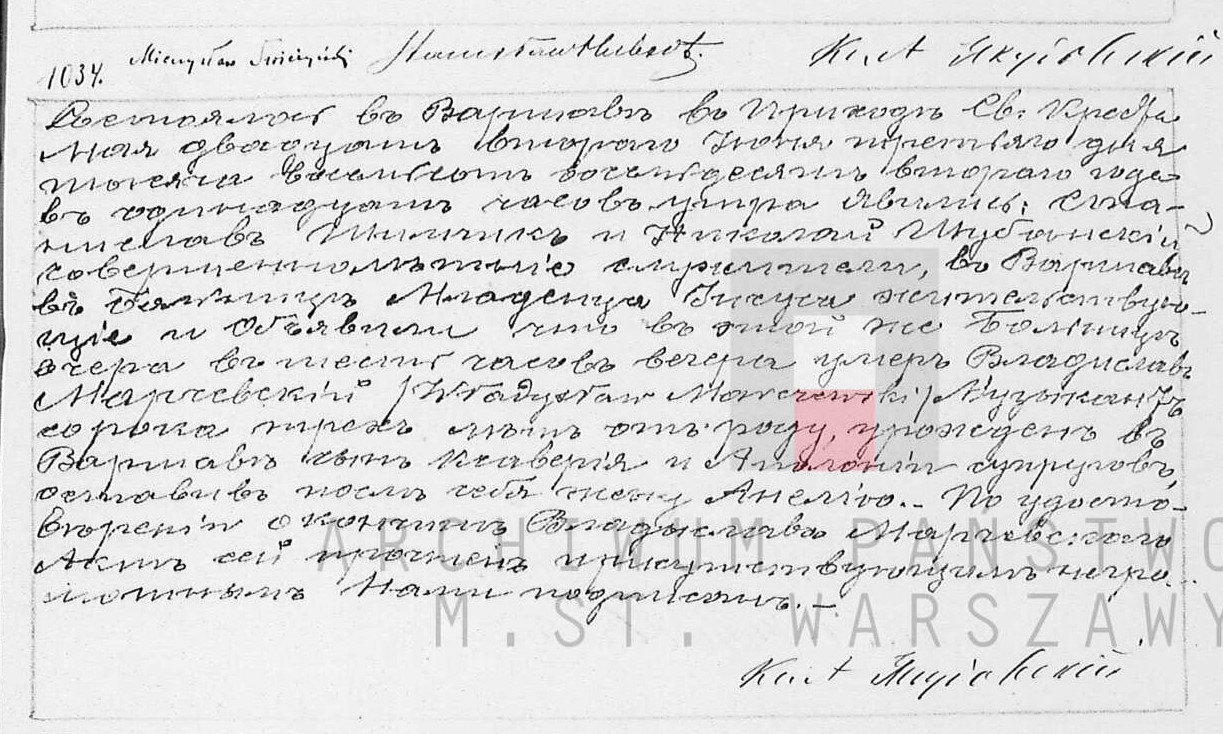 1034.
Состоялось въ Варшавѣ въ Приходѣ Св: Креста
Мая двадцать втораго Іюня третьяго дня
тысяча восемьсотъ восемьдесятъ втораго года
въ одинадцать часовъ утра Явились: Ста-
ниславъ и Николай
совершеннолѣтніе служители, въ Варшавѣ
въ Больницѣ Младенца Іисуса жительствую-
щіе и Объявили что въ этой же Больницѣ
вчера въ шесть часовъ вечера умеръ Владиславъ
Марчевскій /Władysław Marczewski/ Музыкантъ
сорока трехъ лѣтъ отъ роду, урожденъ въ
Варшавѣ сынъ Ксаверія и Аполоніи супруговъ,
оставивъ послѣ себя жену Анелію.- По удосто-
вѣреніи о кончинѣ Владыслава Марчевскаго
Актъ сей прочтенъ присутствующимъ негра-
мотнымъ Нами подписанъ.-
ARCHIWUM PAŃSTWO
M.ST. WARSZAWY